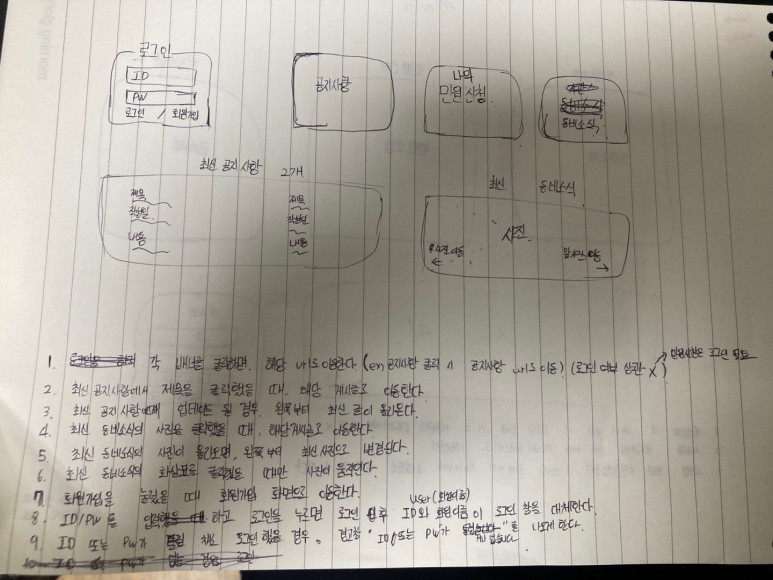 로그인
ID
PW
로그인 / 회원가입
공지사항
나의
민원신청
동네소식
최신 공지사항 2개
제목
작성일
내용
제목
작성일
내용
최신 동네소식
사진
앞사진이동
1. 각 배너를 클릭하면, 해당 url로 이동한다. (ex) 공지사항 클릭 시 공지사항 url로 이동) (로그인 여부 상관 X)
민원신청은 로그인 필요
2. 최신 공지사항에서 제목을 클릭했을 때, 해당 게시글로 이동한다.
3. 최신 공지사항이 업데이트 될 경우, 왼쪽부터 최신 글이 올라온다.
4. 최신 동네소식의 사진을 클릭했을 때, 해당게시글로 이동한다.
5. 최신 동네소식의 사진이 올라오면, 왼쪽부터 최신사진으로 변경된다.
6. 최신 동네소식의 화살표를 클릭했을 때만 사진이 움직인다.
7. 회원가입을 눌렀을 때 회원가입 화면으로 이동한다.
8. ID/PW를 입력하고 로그인을 누르면 로그인 후 ID와 회원이름이 로그인 창을 대체한다.
User(회원이름)
9. ID 또는 PW가 틀린 채로 로그인했을 경우, 경고창 "ID또는 PW가 "를 나오게 한다.
10. ID 또는 PW가 없는 경우